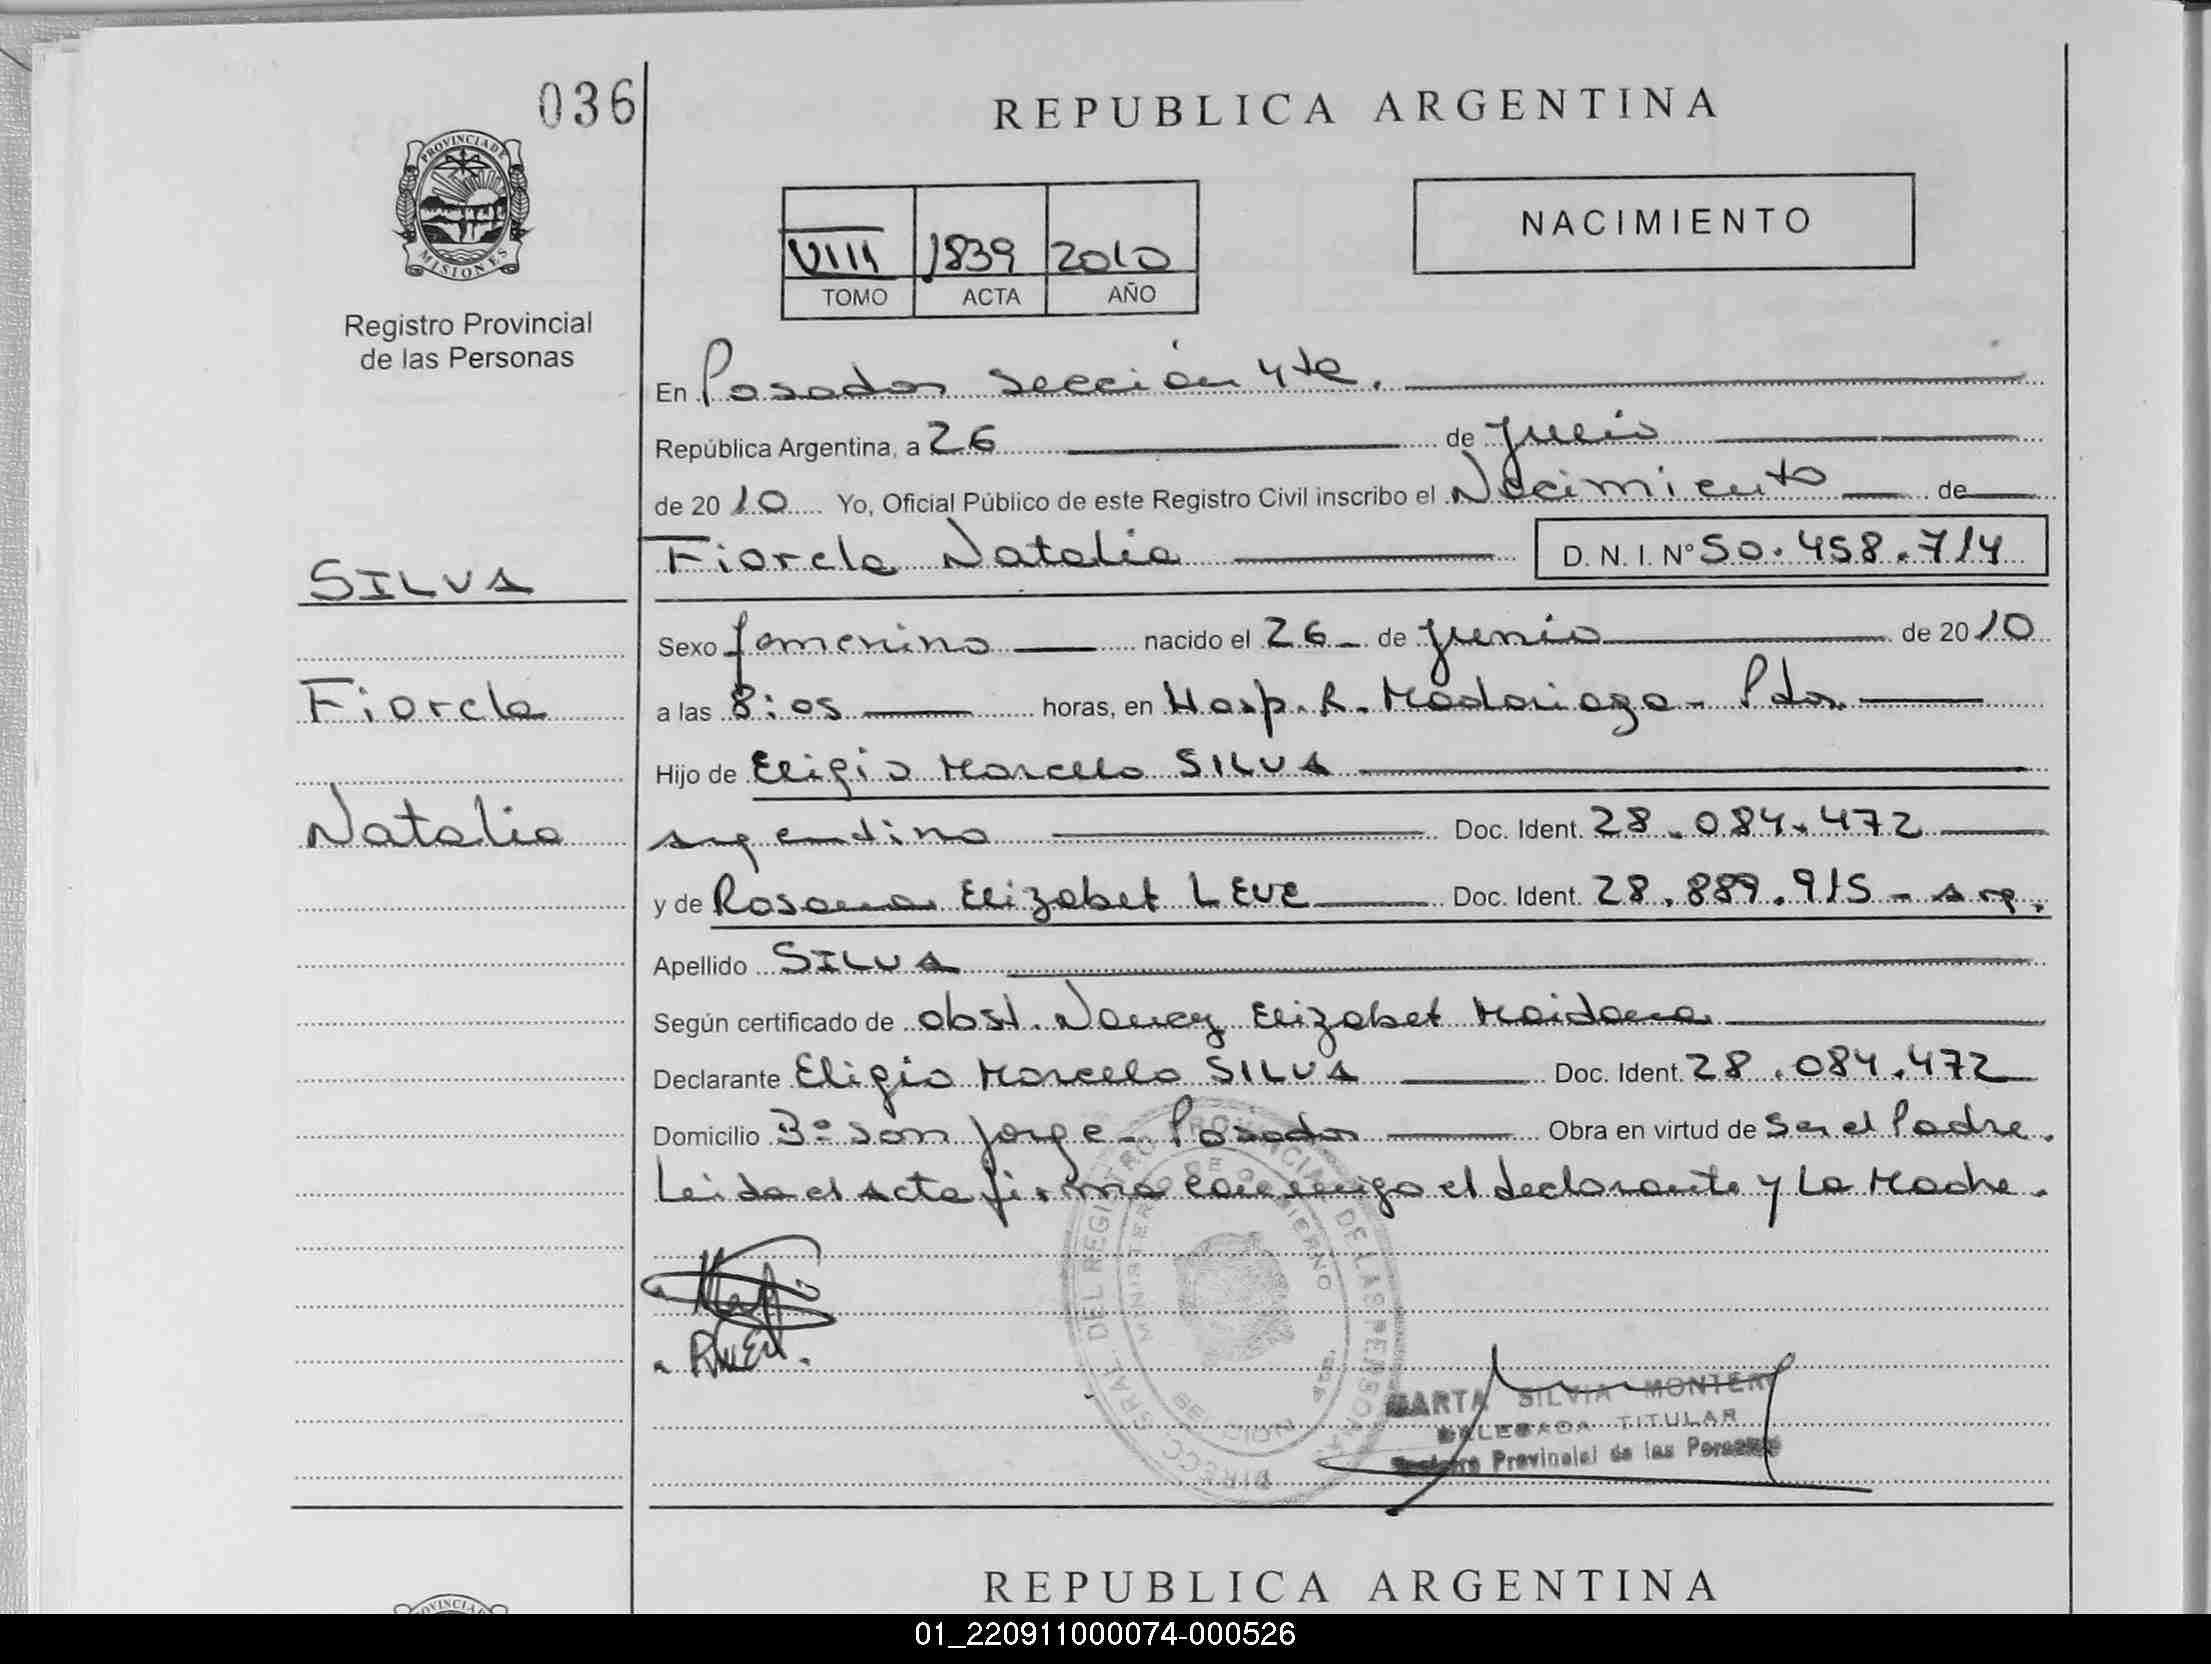 036
REPUBLICA ARGENTINA
PROVINCIA DE
MISIONES
Registro Provincial
de las Personas
VIII 1839 2010
TOMO ACTA AÑO
NACIMIENTO
En Posadas sección 4ta.
República Argentina, a 26 de Julio
de 2010 Yo, Oficial Público de este Registro Civil inscribo el Nacimiento de
Fiorela Natalia D. N. I. N° 50.458.714
SILVA
Fiorela
Natalia
Sexo femenino nacido el 26 de Junio de 2010
a las 8:05 horas, en Hosp. R. Madariaga - Pdas.
Hijo de Eligio Marcelo SILVA
argentino Doc. Ident. 28.084.472
y de Rosana Elizabet LEVE Doc. Ident. 28.889.915 - arg.
Apellido SILVA
Según certificado de obst. Nancy Elizabet Maidana
Declarante Eligio Marcelo SILVA Doc. Ident. 28.084.472
Domicilio Bº San Jorge - Posadas Obra en virtud de Ser el Padre.
Leida el acta firma conmigo el declarante y La Madre.
MARTA SILVIA MONTERO
DELEGADA TITULAR
Registro Provincial de las Personas
REPUBLICA ARGENTINA
01_220911000074-000526